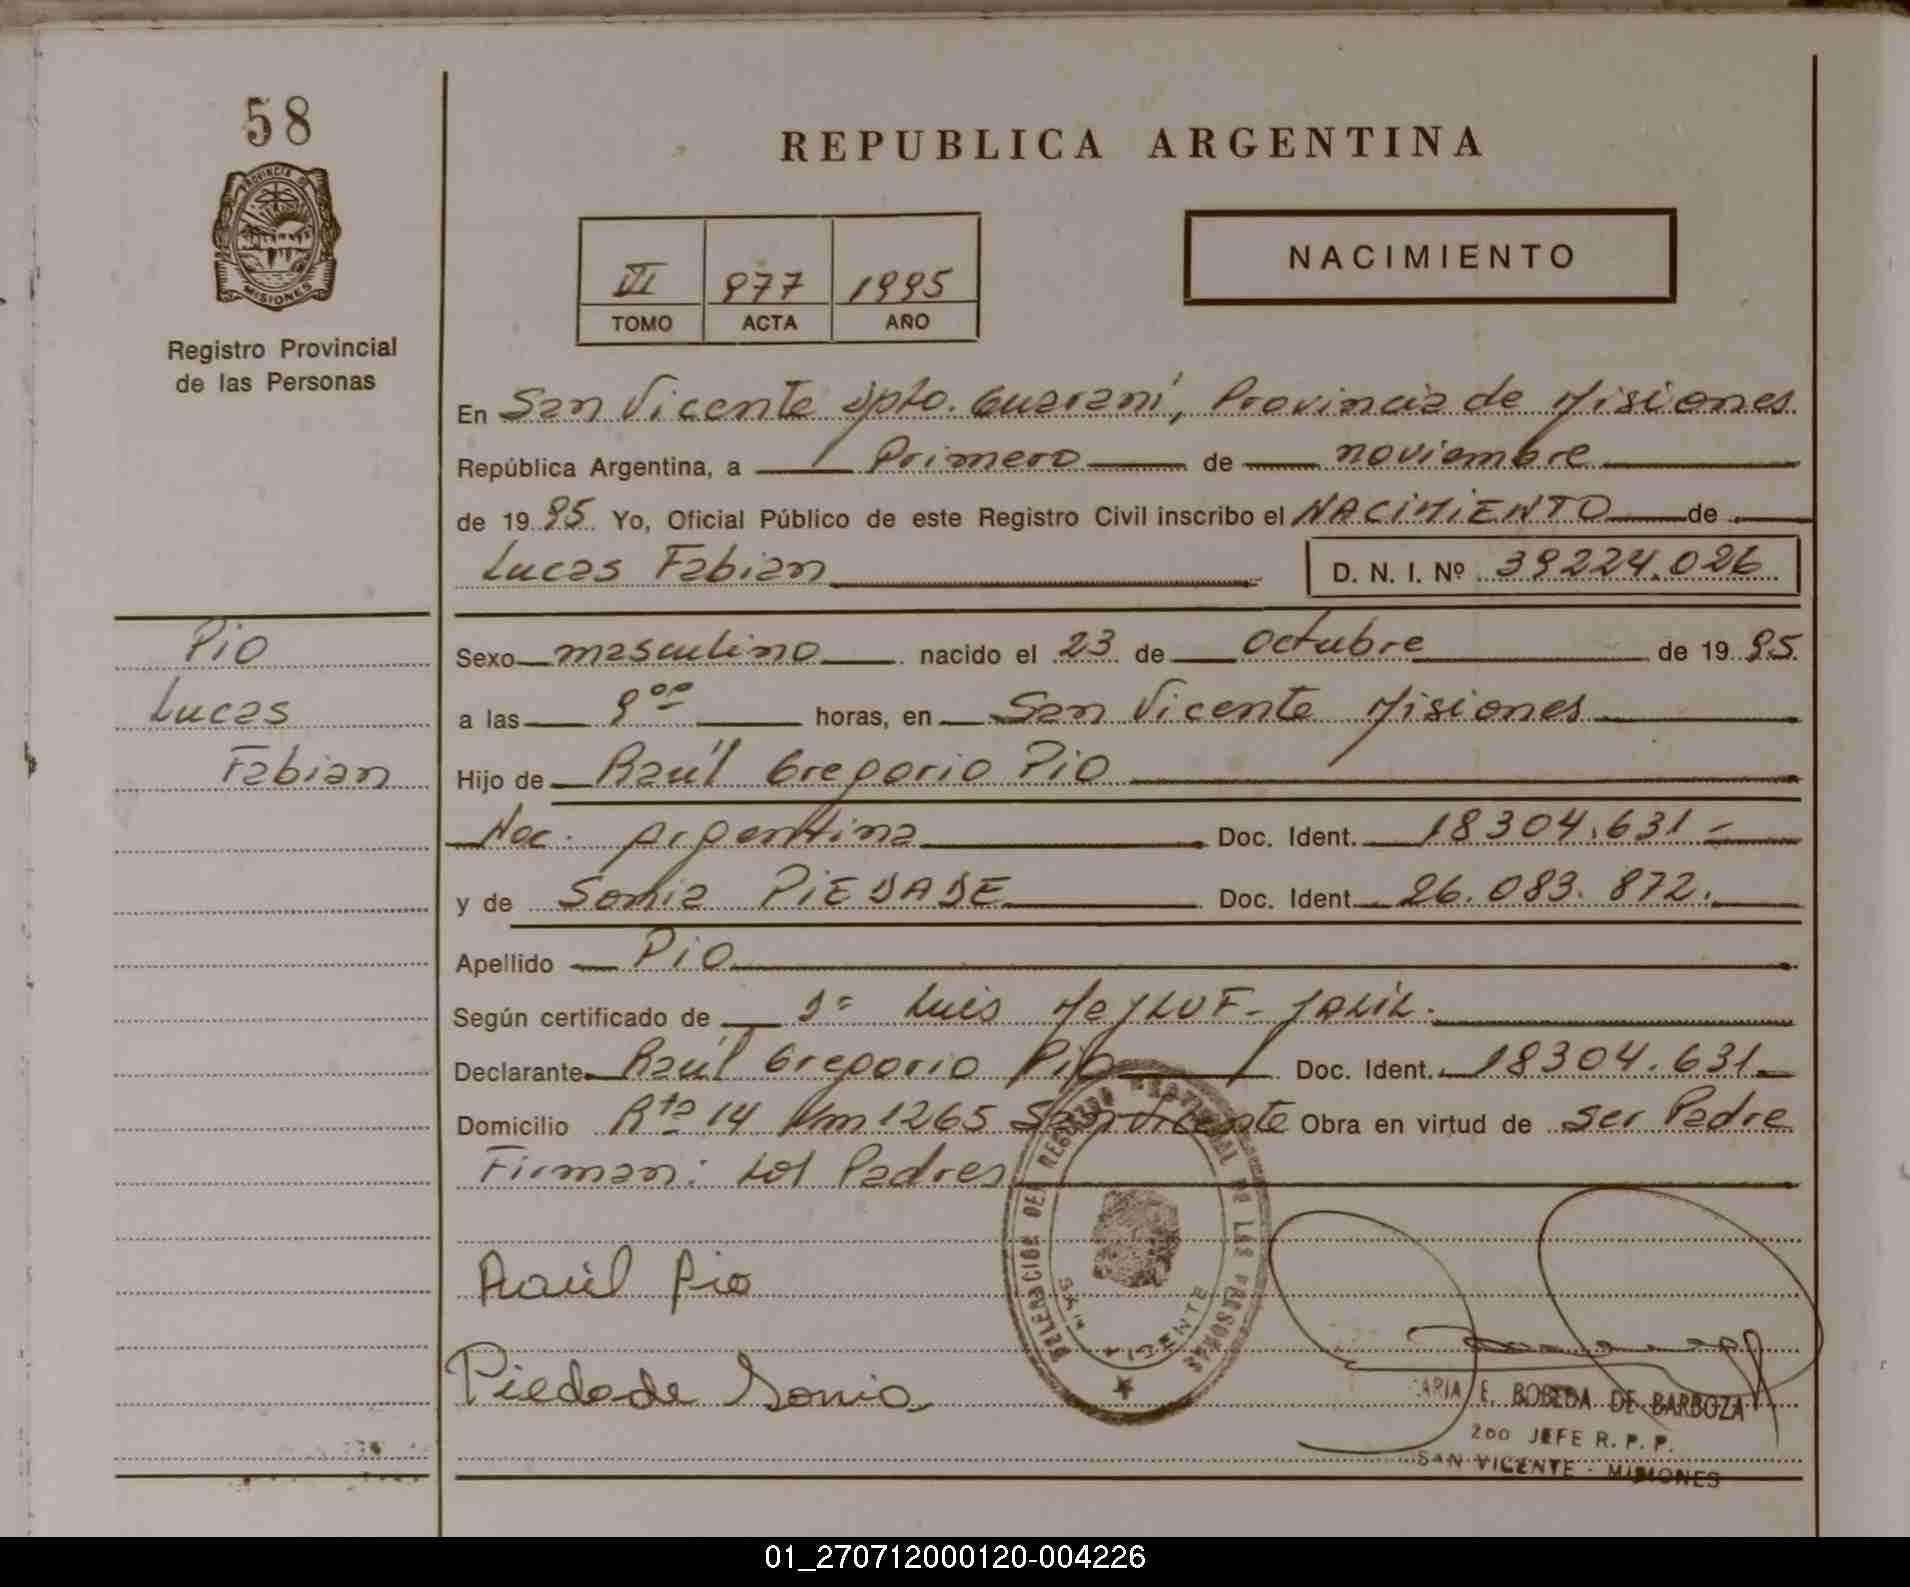 58
PROVINCIA DE
MISIONES
Registro Provincial
de las Personas
REPUBLICA ARGENTINA
VI 977 1995
TOMO ACTA AÑO
NACIMIENTO
En San Vicente Dpto. Guaraní, Provincia de Misiones
República Argentina, a Primero de noviembre
de 1995 Yo, Oficial Público de este Registro Civil inscribo el NACIMIENTO de
Lucas Fabian D. N. I. Nº 39224.026
Pio
Lucas
Fabian
Sexo masculino nacido el 23 de octubre de 1995.
a las 9ºº horas, en San Vicente Misiones
Hijo de Raúl Gregorio Pio
Nac. Argentina Doc. Ident. 18304.631-
y de Sonia PIEDADE Doc. Ident. 26.083.872.
Apellido Pio
Según certificado de Luis JALIL.
Declarante Raúl Gregorio Pio Doc. Ident. 18304.631
Domicilio Rta 14 Km 1265 San Vicente Obra en virtud de ser Padre
Firman: los Padres
Raúl Pio
Piedade Sonia
DELEGACION DEL REGISTRO PROVINCIAL DE LAS PERSONAS
SAN VICENTE
MARIA E. BOBEDA DE BARBOZA
2do JEFE R. P. P.
SAN VICENTE - MISIONES
01_270712000120-004226